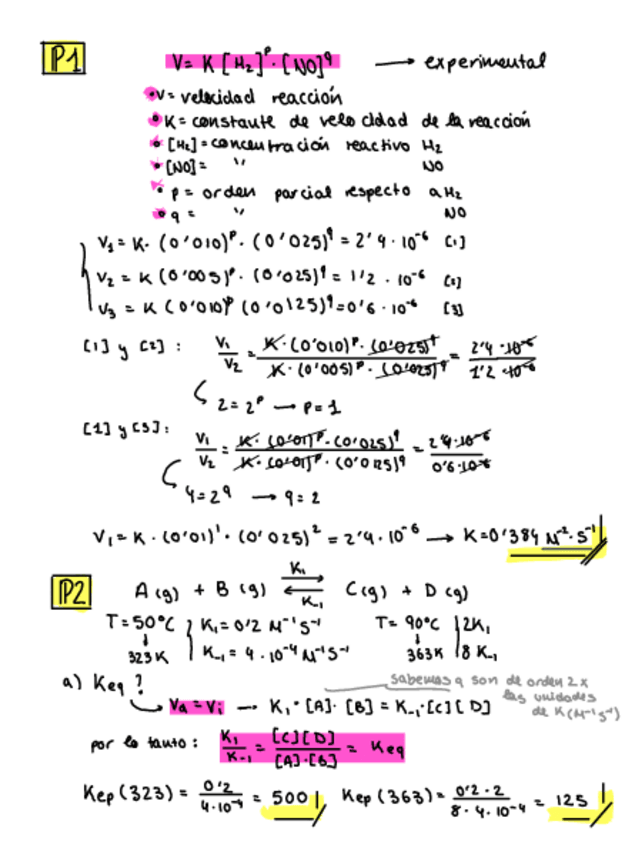 P1
V = K [H₂]ᵖ · [NO]ᑫ → experimental
• V = velocidad reacción
• K = constante de velocidad de la reacción
• [H₂] = concentración reactivo H₂
• [NO] = " NO
• p = orden parcial respecto a H₂
• q = " NO
V₁ = K · (0'010)ᵖ · (0'025)ᑫ = 2'4 · 10⁻⁶ [1]
V₂ = K (0'005)ᵖ · (0'025)ᑫ = 1'2 · 10⁻⁶ [2]
V₃ = K (0'010)ᵖ (0'0125)ᑫ = 0'6 · 10⁻⁶ [3]
[1] y [2] : V₁/V₂ = K · (0'010)ᵖ · (0'025)ᑫ / K · (0'005)ᵖ · (0'025)ᑫ = 2'4 · 10⁻⁶ / 1'2 · 10⁻⁶
2 = 2ᵖ → p = 1
[1] y [3] : V₁/V₂ = K · (0'01)ᵖ · (0'025)ᑫ / K · (0'01)ᵖ · (0'0125)ᑫ = 2'4 · 10⁻⁶ / 0'6 · 10⁻⁶
4 = 2ᑫ → q = 2
V₁ = K · (0'01)¹ · (0'025)² = 2'4 · 10⁻⁶ → K = 0'384 M⁻² · s⁻¹
P2 A (g) + B (g) K₁ ⇌ K₋₁ C (g) + D (g)
T = 50°C K₁ = 0'2 M⁻¹ s⁻¹ T = 90°C 2K₁
323 K K₋₁ = 4 · 10⁻⁴ M⁻¹ s⁻¹ 363 K 8 K₋₁
a) Keq ? sabemos q son de orden 2 x las unidades de K (M⁻¹ s⁻¹)
Vd = Vi → K₁ · [A] · [B] = K₋₁ · [C] [D]
por lo tanto : K₁/K₋₁ = [C] [D] / [A] · [B] = Keq
Kep (323) = 0'2 / 4 · 10⁻⁴ = 500 Kep (363) = 0'2 · 2 / 8 · 4 · 10⁻⁴ = 125